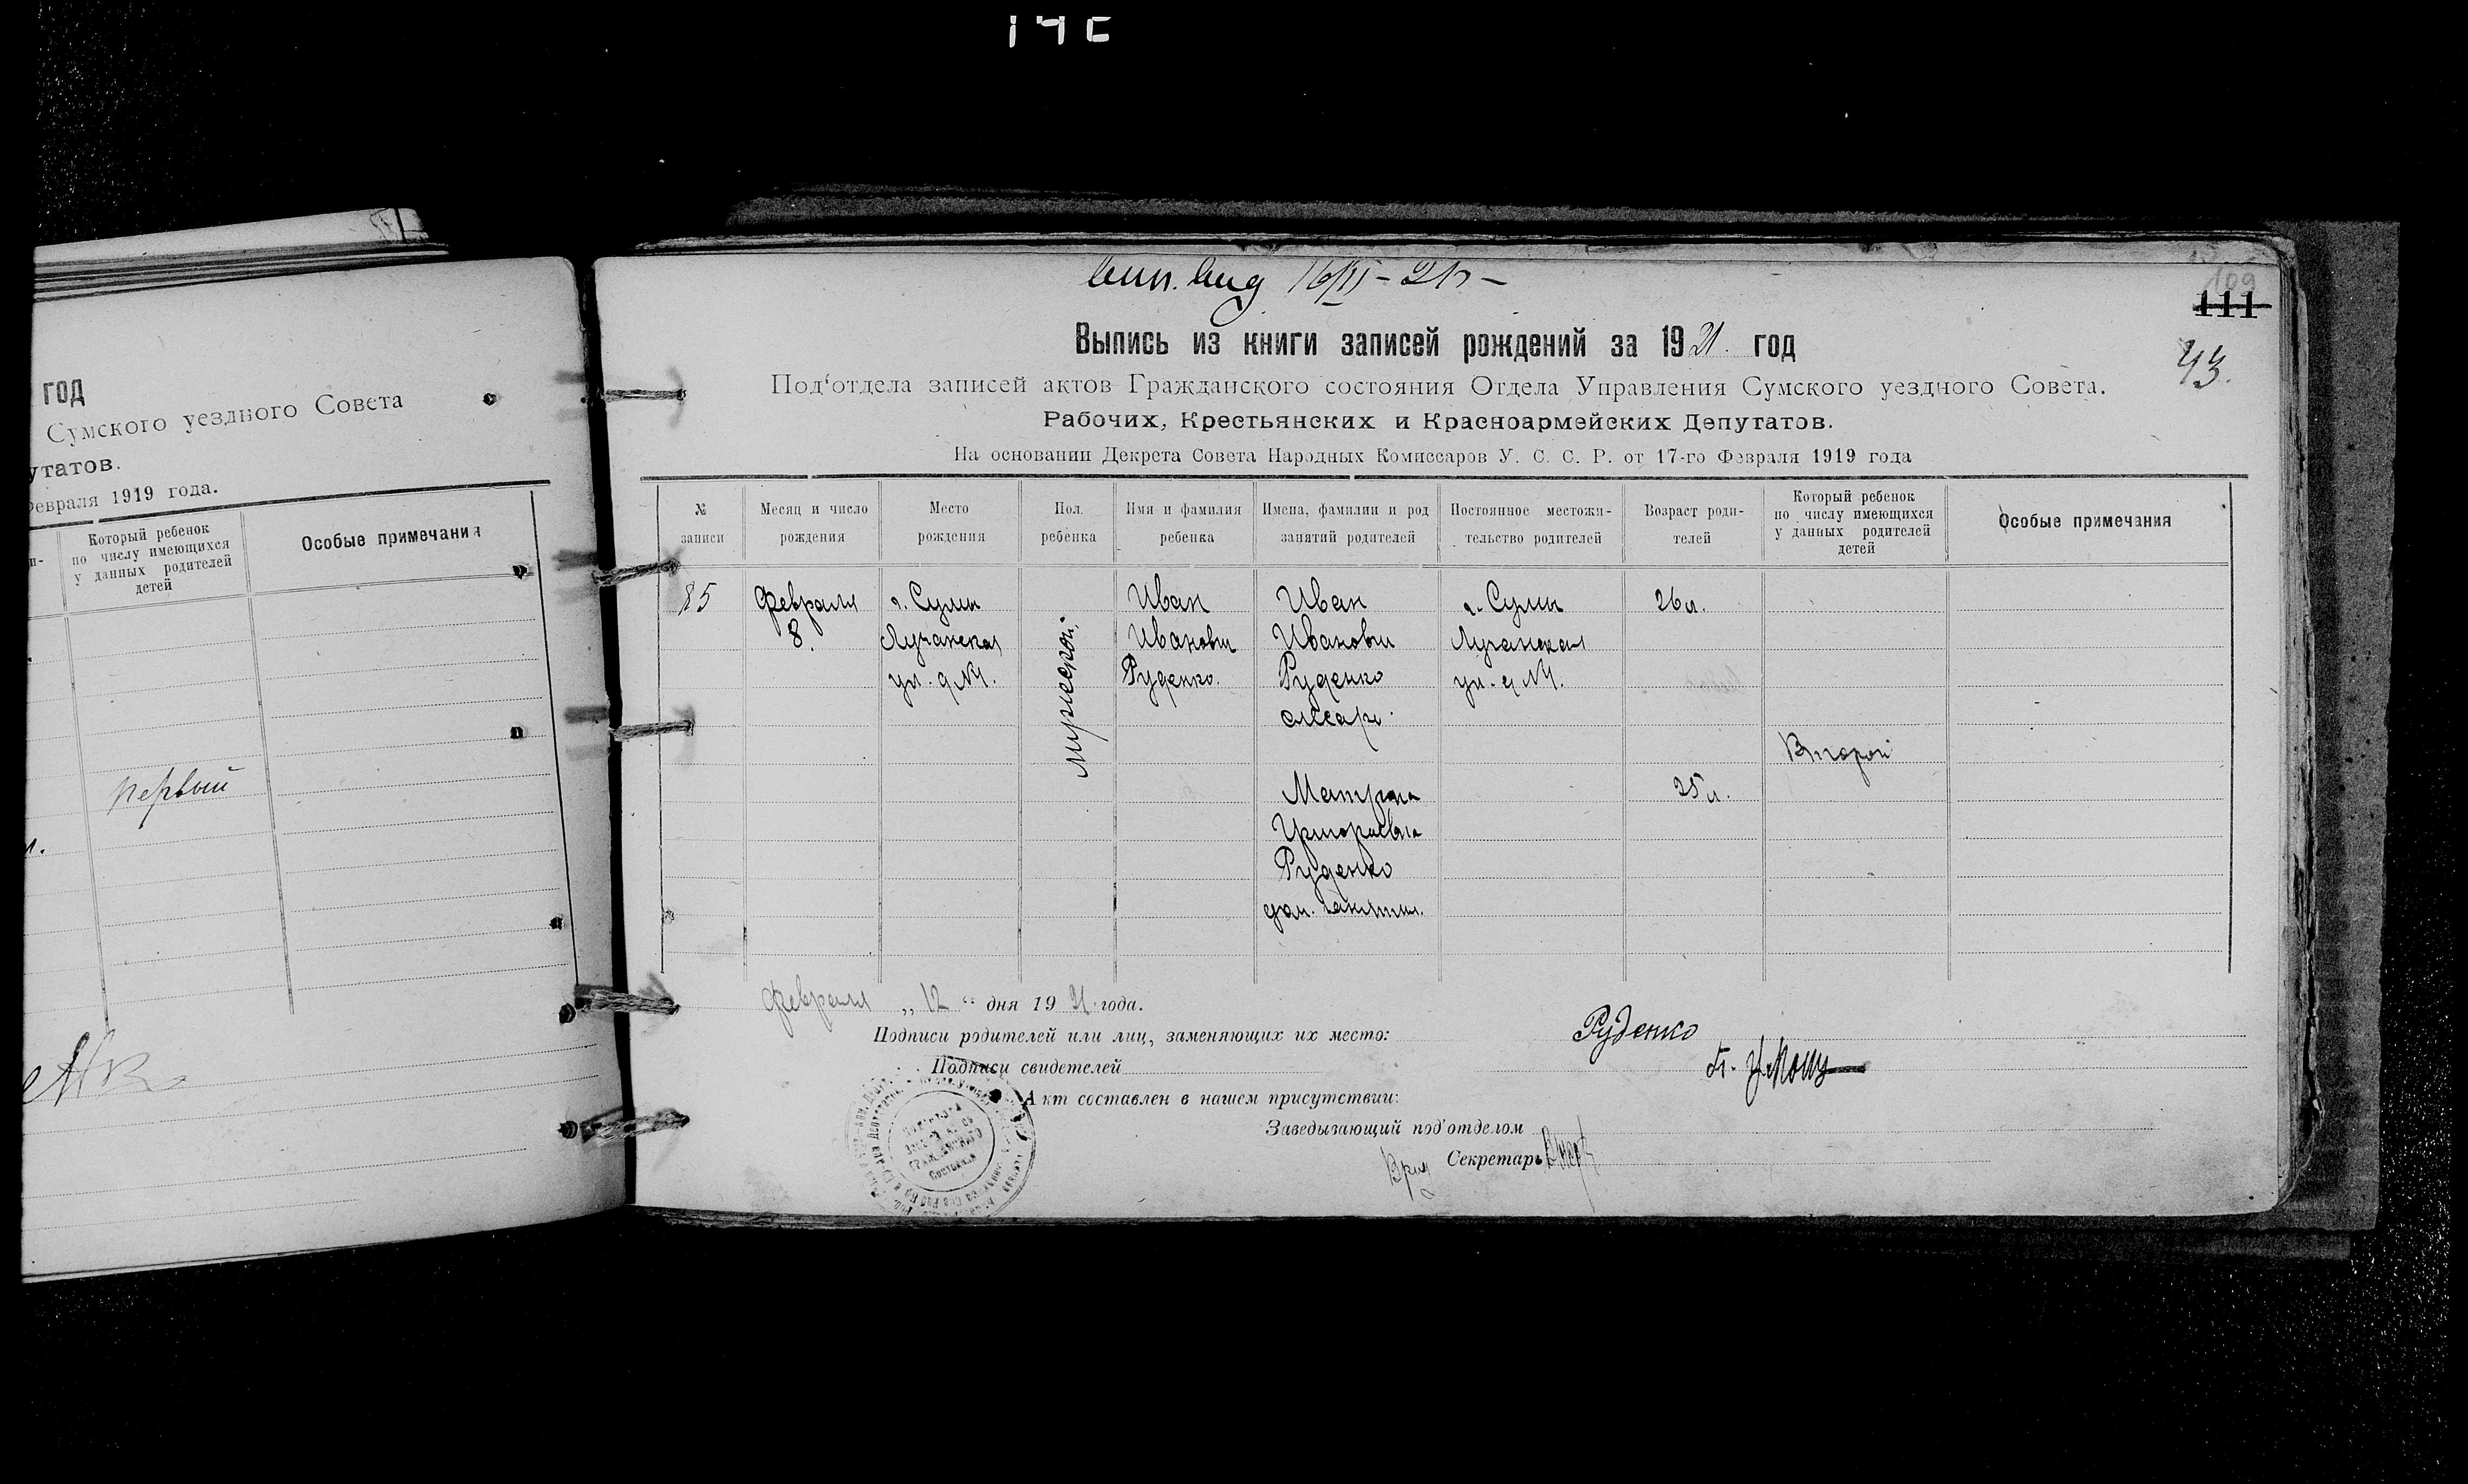 год
Сумского уездного Совета
утатов.
Февраля 1919 года.
Который ребенок
по числу имеющихся
у данных родителей
детей
Особые примечания
первый
109
111
43.
Выпись из книги записей рождений за 1921. год
Под‘отдела записей актов Гражданского состояния Отдела Управления Сумского уездного Совета.
Рабочих, Крестьянских и Красноармейских Депутатов.
На основании Декрета Совета Народных Комиссаров У. С. С. Р. от 17-го Февраля 1919 года
№
записи
Месяц и число
рождения
Место
рождения
Пол.
ребенка
Имя и фамилия
ребенка
Имена, фамилии и род
занятий родителей
Постоянное местожи-
тельство родителей
Возраст роди-
телей
Который ребенок
по числу имеющихся
у данных родителей
детей
Особые примечания
85
Февраля
8.
г. Сумы
Лучанская
ул. д №
мужеской
Иван
Иванович
Руденко.
Иван
Иванович
Руденко
слесарь.
Матрона
Григорьевна
Руденко
дом. занятия.
г. Сумы
Лучанская
ул. д №
26 л.
25 л.
Второй
Февраля „ 12 “ дня 1921. года.
Подписи родителей или лиц, заменяющих их место: Руденко
Подписи свидетелей
Акт составлен в нашем присутствии:
Заведывающий под‘отделом
Врид Секретарь